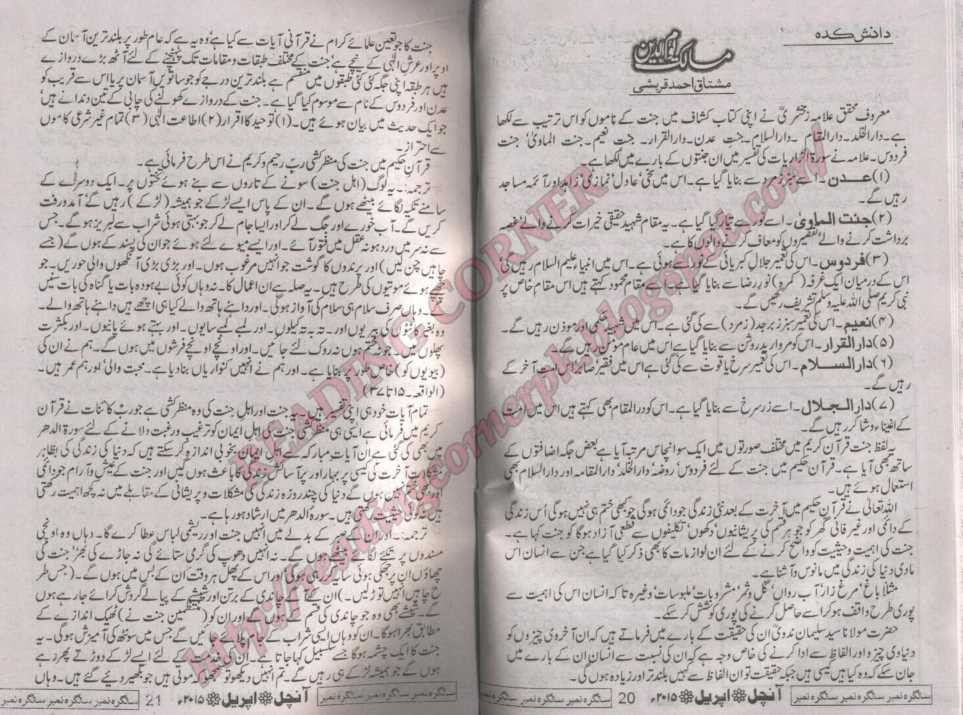 دانش کدہ
مالک یوم الدین
مشتاق احمد قریشی
معروف محقق علامہ زمخشریؒ نے اپنی کتاب کشاف میں جنت کے ناموں کو اس ترتیب سے لکھا
ہے۔ دارالخلد۔ دارالمقام۔ دارالسلام۔ جنت عدن۔ دارالقرار۔ جنت نعیم۔ جنت الماویٰ، جنت
فردوس۔ علامہ نے سورۃ الذاریات کی تفسیر میں ان جنتوں کے بارے میں لکھا ہے۔
(۱) عدن۔ اسے سے بنایا گیا ہے۔ اس میں سخی، عادل، نمازی، زاہد اور آئمہ مساجد
رہیں گے۔
(۲) جنت الماویٰ۔ اسے نور سے بنایا گیا ہے۔ یہ مقام شہید حقیقی خیرات کرنے والے، غصہ
برداشت کرنے والے تقصیروں کو معاف کرنے والوں کا ہے۔
(۳) فردوس۔ اس کی تعمیر جلال کبریائی کے نور سے ہوئی ہے۔ اس میں انبیا علیہم السلام رہیں گے
اس کے درمیان ایک غرفہ (کمرہ) نور رضا سے بنایا گیا ہے۔ اسے مقام محمود کہتے ہیں اس مقام خاص پر
نبی کریم صلی اللہ علیہ وسلم تشریف رکھیں گے۔
(۴) نعیم۔ اس کی تعمیر سبز زبرجد (زمرد) سے کی گئی ہے۔ اس میں شہید اور موذن رہیں گے۔
(۵) دارالقرار۔ اس کو مروارید روشن سے بنایا گیا ہے اس میں عام مومن رہیں گے۔
(۶) دارالسلام۔ اس کی تعمیر سرخ یاقوت سے کی گئی ہے اس میں فقیر صابر اس امت آخر کے
رہیں گے۔
(۷) دارالجلال۔ اسے زر سرخ سے بنایا گیا ہے۔ اس کو دارالمقام بھی کہتے ہیں اس میں امت
کے اغنیاء شاکر رہیں گے۔
یہ لفظ جنت قرآن کریم میں مختلف صورتوں میں ایک سو انچاس مرتبہ آیا ہے بعض جگہ اضافتوں کے
ساتھ بھی آیا ہے۔ قرآن حکیم میں جنت کے لئے فردوس، روضۃ، دارالخلد، دارالمقامہ اور دارالسلام بھی
استعمال ہوئے ہیں۔
اللہ تعالیٰ نے قرآن حکیم میں آخرت کے بعد نئی زندگی جو دائمی ہوگی جو کبھی ختم ہی نہیں ہوگی اس زندگی
کے دائمی اور غیر فانی گھر کو جو ہر قسم کی پریشانیوں، دکھوں، تکلیفوں سے قطعی آزاد ہوگا کو جنت کہا ہے۔
جنت کی اہمیت و حیثیت کو واضح کرنے کے لئے ان لوازمات کا بھی ذکر کیا گیا ہے جن سے انسان اس
مادی دنیا کی زندگی میں مانوس و آشنا ہے۔
مثلاً باغ، مرغ زار، آب رواں، گل و ثمر، مشروبات، ملبوسات، وغیرہ تاکہ انسان اس کی اہمیت سے
پوری طرح واقف ہو کر اسے حاصل کرنے کی پوری کوشش کر سکے۔
حضرت مولانا سید سلیمان ندویؒ ان کی حقیقت کے بارے میں فرماتے ہیں کہ ان آخروی چیزوں کو
دنیاوی چیزوں اور الفاظ سے ادا کرنے کی خاص وجہ ہے کہ ان کی نسبت سے انسان ان کے بارے میں
جان سکے کہ وہ کیا کیسی ہیں جبکہ حقیقت تو ان الفاظ سے کہیں بلند تر اور زیادہ ہوگی۔
سالگرہ نمبر سالگرہ نمبر آنچل اپریل ۲۰۱۵ء 20 سالگرہ نمبر سالگرہ نمبر سالگرہ نمبر
جنت کا جو تعین علمائے کرام نے قرآنی آیات سے کیا ہے وہ یہ ہے کہ عام طور پر بلند ترین آسمان کے
اوپر اور عرش الٰہی کے نیچے ہے، جنت کے مختلف طبقات و مقامات تک پہنچنے کے لئے آٹھ بڑے دروازے
ہیں ہر طبقہ اپنی جگہ کئی کئی طبقوں میں منقسم ہے بلند ترین درجے کو جو ساتویں آسمان پر یا اس سے قریب کو
عدن اور فردوس کے نام سے موسوم کیا گیا ہے۔ جنت کے دروازے کھولنے کی چابی کے تین دندانے ہیں
جو ایک حدیث میں بیان ہوئے ہیں۔ (۱) توحید کا اقرار (۲) اطاعت الٰہی (۳) تمام غیر شرعی کاموں
سے احتراز۔
قرآن حکیم میں جنت کی منظر کشی رب رحیم و کریم نے اس طرح فرمائی ہے۔
ترجمہ۔ یہ لوگ (اہل جنت) سونے کے تاروں سے بنے ہوئے تختوں پر۔ ایک دوسرے کے
سامنے تکیہ لگائے بیٹھے ہوں گے۔ ان کے پاس ایسے لڑکے جو ہمیشہ (لڑکے) رہیں گے، آمدورفت
کریں گے۔ آب خورے اور جگ لے کر اور ایسا جام لے کر جو بہتی ہوئی شراب سے لبریز ہوگا۔ جس
سے نہ سر میں درد ہو نہ عقل میں فتور آئے۔ اور ایسے میوے لئے ہوئے جو ان کی پسند کے ہوں گے (جسے
چاہیں چن لیں) اور پرندوں کا گوشت جو انہیں مرغوب ہوں۔ اور بڑی بڑی آنکھوں والی حوریں۔ جو
موتیوں کی طرح ہیں۔ یہ صلہ ہے ان اعمال کا۔ نہ وہاں کوئی بے ہودہ بات یا گناہ کی بات ہیں
وہاں صرف سلام ہی سلام کی آواز ہوگی۔ اور داہنے ہاتھ والے کیا ہی اچھے ہیں داہنے ہاتھ والے۔
وہ بغیر کانٹوں کی بیریوں اور۔ تہ بہ تہ کیلوں۔ اور لمبے لمبے سایوں۔ اور بہتے ہوئے پانیوں۔ اور بکثرت
پھلوں میں۔ جو نہ ختم ہوں نہ روک لئے جائیں۔ اور اونچے اونچے فرشوں میں ہوں گے۔ ہم نے ان کی
(بیویوں کو) خاص طور پر بنایا ہے۔ اور ہم نے انہیں کنواریاں بنا دیا ہے۔ محبت والی، اور ہم عمر ہیں۔
(الواقعہ۔ ۱۵ تا ۳۷)
تمام آیات خود ہی اپنی تفسیر ہیں۔ یہ جنت اور اہل جنت کی وہ منظر کشی ہے جو رب کائنات نے قرآن
کریم میں فرمائی ہے ایسی ہی منظر کشی جنت کی اہل ایمان کو ترغیب و رغبت دلانے کے لئے سورۃ الدھر
میں بھی کی گئی ہے ان آیات مبارکہ سے اہل ایمان بخوبی اندازہ کر سکتے ہیں کہ دنیا کی زندگی کی بظاہر
مشکلات آخرت کی کیسی پر بہار اور پرآسائش زندگی کا باعث ہوں گی اور جنت کے عیش و آرام جو دائمی
اور ہوں گے دنیا کی چند روزہ زندگی کی مشکلات و پریشانی کے مقابلے میں نہ کچھ اہمیت رکھتی
ہیں نہ کوئی حیثیت رکھتی ہیں۔ سورۃ الدھر میں ارشاد ہو رہا ہے۔
ترجمہ: اور کے بدلے میں انہیں جنت اور ریشمی لباس عطا کرے گا۔ وہاں وہ اونچی
مسندوں پر تکئے لگائے بیٹھے ہوں گے۔ نہ انہیں دھوپ کی گرمی ستائے گی نہ جاڑے کی ٹھر، جنت کی
چھاؤں ان پر جھکی ہوئی سایہ کر رہی ہوگی اور اس کے پھل ہر وقت ان کے بس میں ہوں گے۔ (جس طرح
چاہیں انہیں توڑ لیں)۔ ان کے آگے چاندی کے برتن اور شیشے کے پیالے گردش کرائے جا رہے ہوں
گے۔ شیشے بھی وہ جو چاندی کی قسم کے ہوں گے۔ اور ان کو (منتظمین جنت نے) ٹھیک اندازے کے
مطابق بھرا ہوگا۔ ان کو وہاں ایسی شراب کے جام پلائے جائیں گے جس میں سونٹھ کی آمیزش ہوگی۔ یہ
جنت کا ایک چشمہ ہوگا جسے سلسبیل کہا جاتا ہے۔ ان کی خدمت کے لئے ایسے لڑکے دوڑتے پھر رہے
ہوں گے جو ہمیشہ لڑکے ہی رہیں گے۔ تم انہیں دیکھو تو سمجھو کہ موتی ہیں جو بکھیر دیئے گئے ہیں۔ وہاں
سالگرہ نمبر سالگرہ نمبر سالگرہ نمبر 21 آنچل اپریل ۲۰۱۵ء سالگرہ نمبر سالگرہ نمبر
READING CORNER
http://readingcornerpk.blogspot.com/